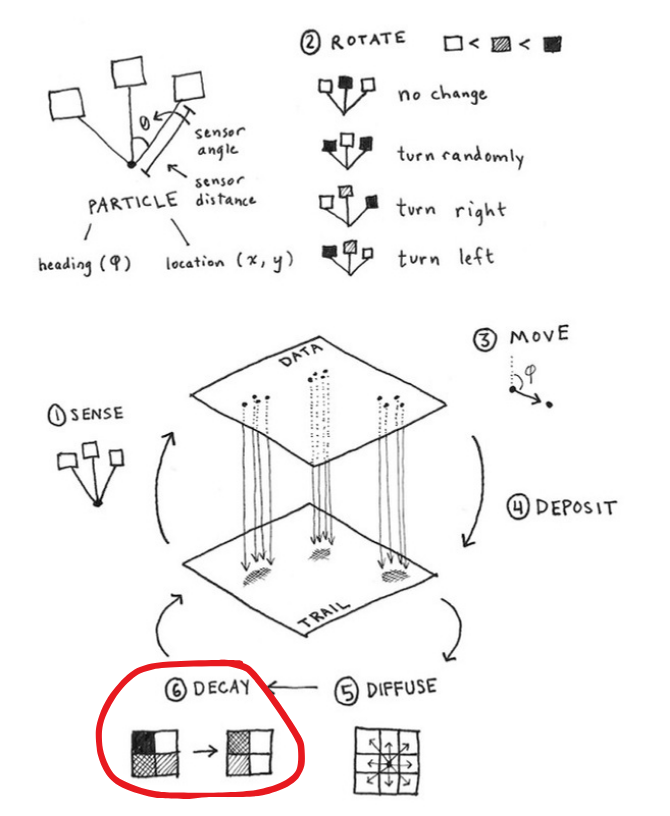 ② ROTATE □ < ▨ < ■
θ
sensor
angle
sensor
distance
PARTICLE
heading (φ)
location (x, y)
no change
turn randomly
turn right
turn left
① SENSE
DATA
③ MOVE
φ
④ DEPOSIT
TRAIL
⑥ DECAY
⑤ DIFFUSE